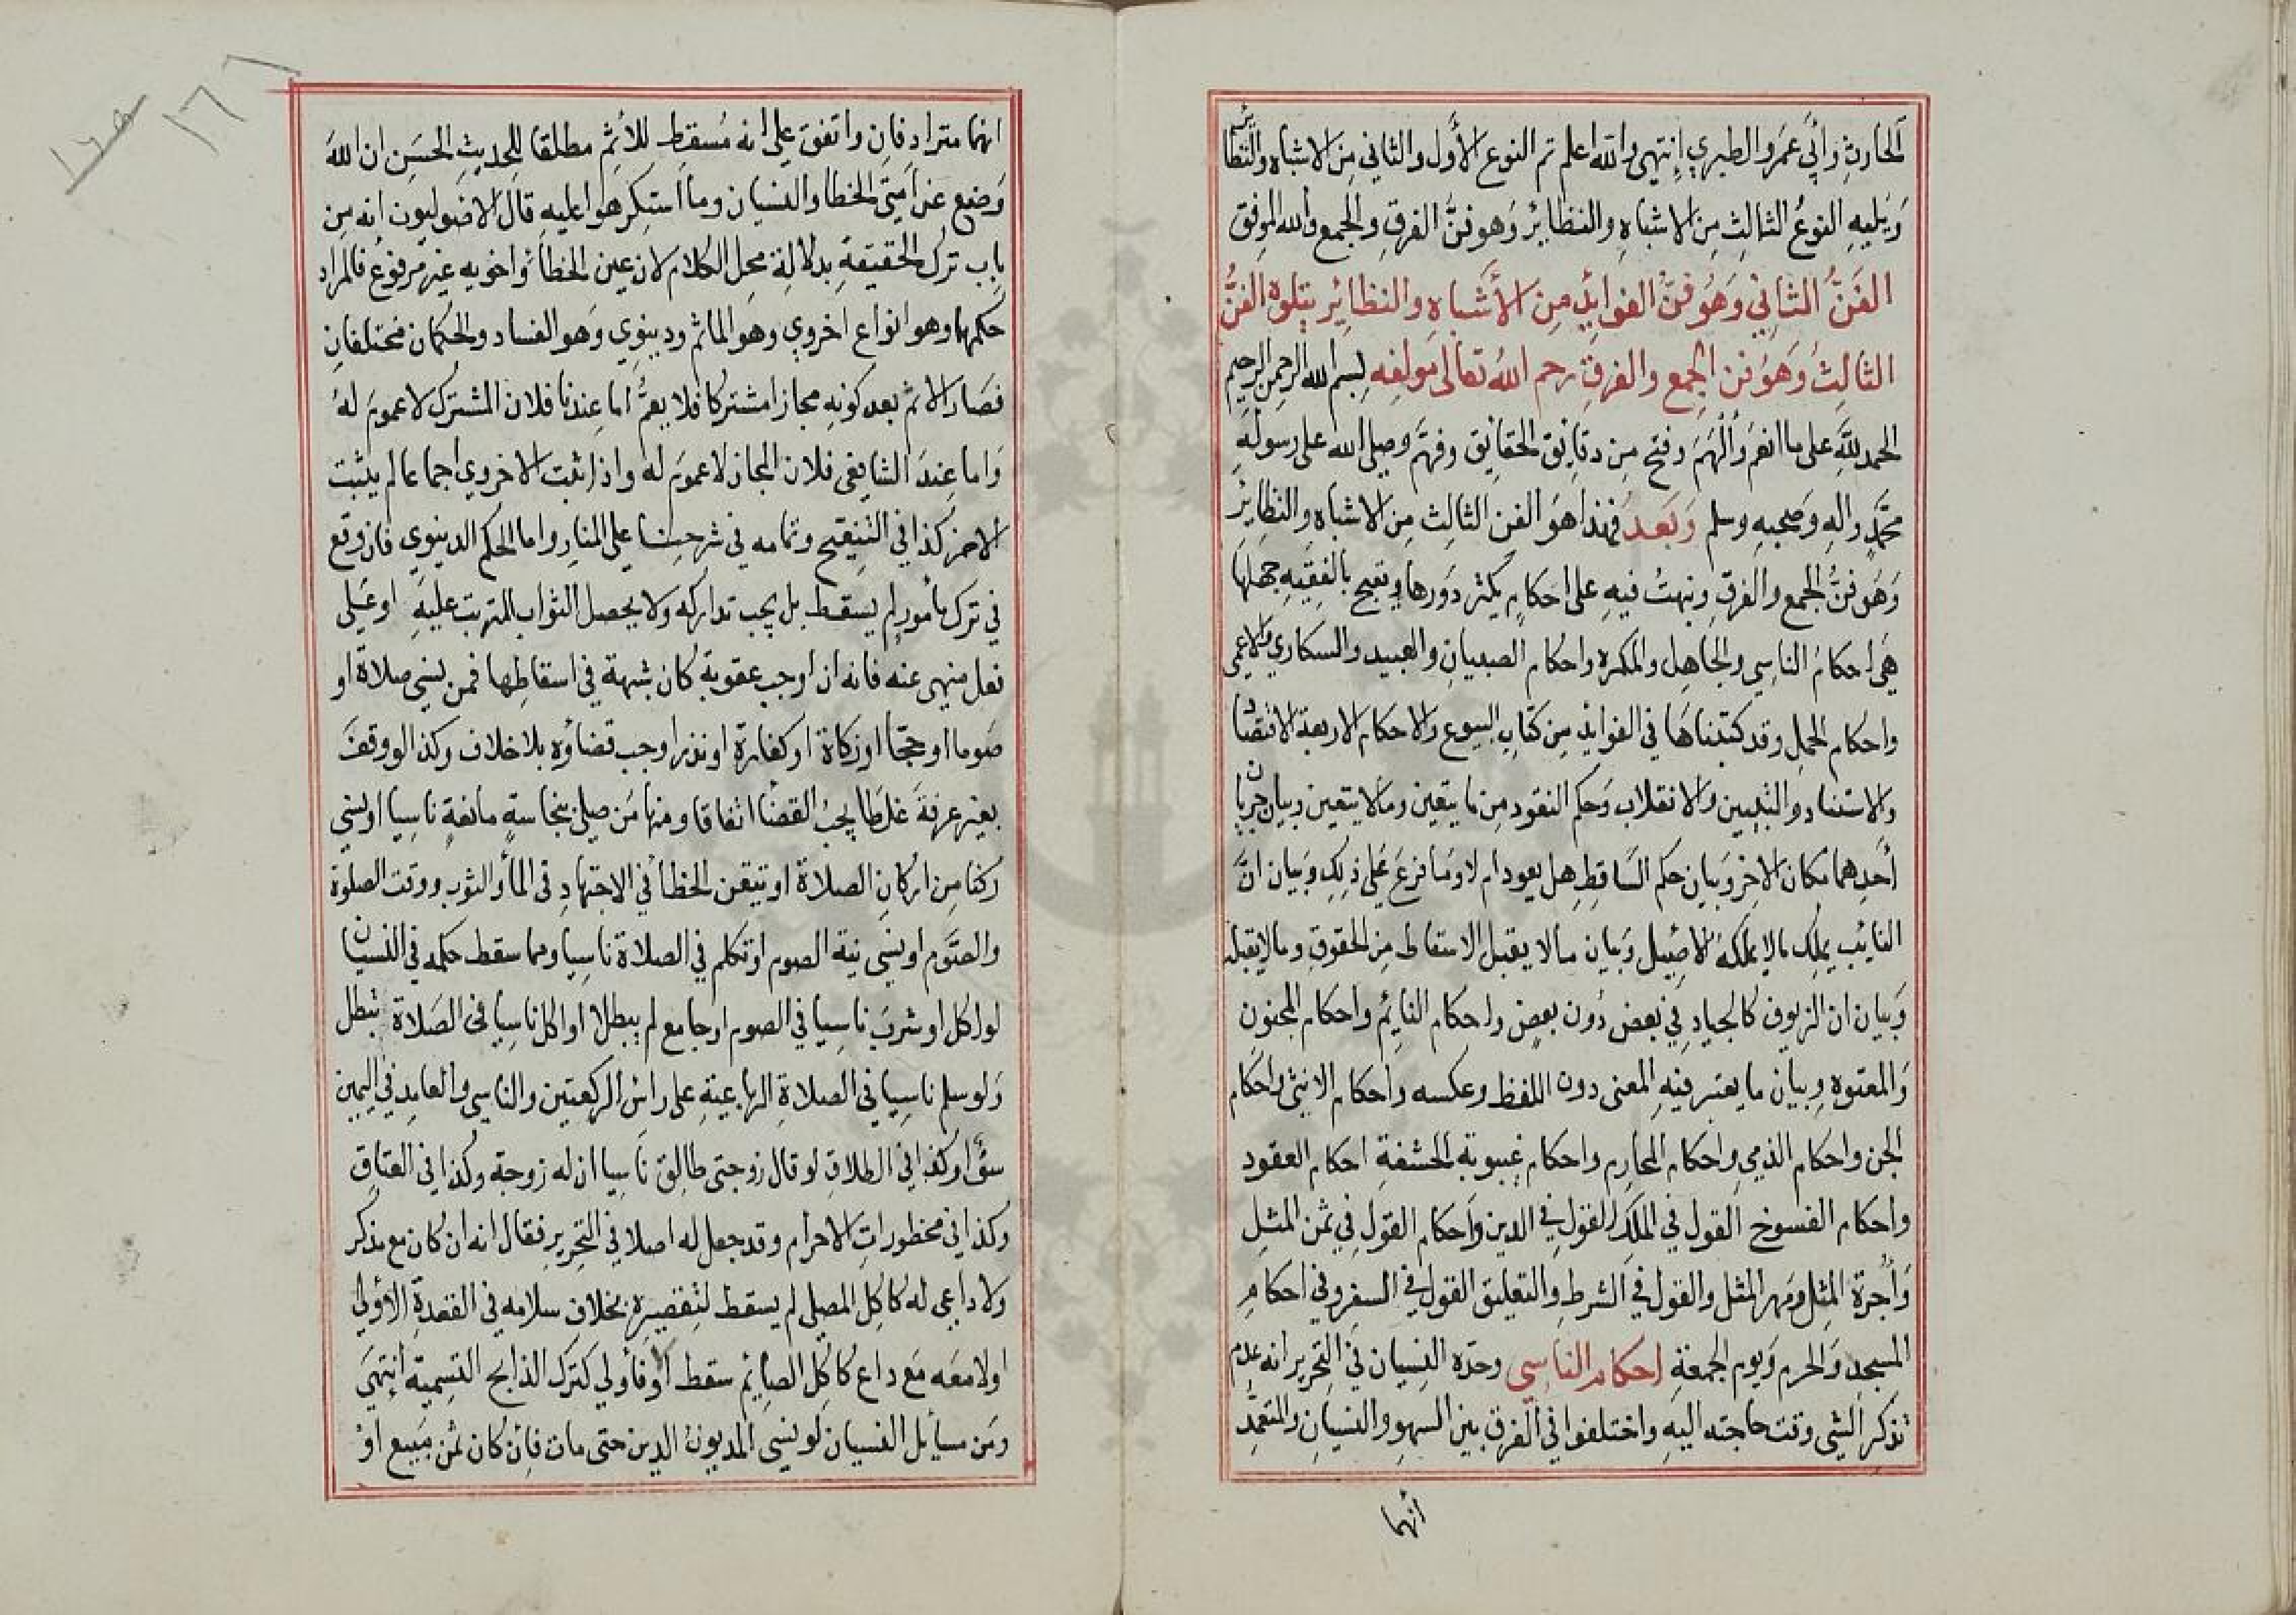 الحارث وأبي عمر والطبري انتهى والله اعلم تم النوع الأول والثاني من الاشباه والنظائر
ويليه النوع الثالث من الاشباه والنظائر وهو فن الفرق والجمع والله الموفق
الفن الثاني وهو فن الفوائد من الأشباه والنظائر يتلوه الفن
الثالث وهو فن الجمع والفرق رحم الله تعالى مولفه بسم الله الرحمن الرحيم
الحمد لله على ما انعم وألهم وفتح من دقايق الحقايق وفهم وصلى الله على رسوله
محمد واله وصحبه وسلم وبعد فهذا هو الفن الثالث من الاشباه والنظائر
وهو فن الجمع والفرق ونبهت فيه على احكام يكثر دورها ويقبح بالفقيه جهلها
هي احكام الناسي والجاهل والمكره واحكام الصبيان والعبيد والسكاري والاعمى
واحكام الحمل وقد كتبناها في الفوايد من كتاب البيوع والاحكام الاربعة الاقتصار
والاستناد والتبيين والانقلاب وحكم النقود من ما يتعين وما لا يتعين وبيان جريان
أحدهما مكان الاخر وبيان حكم الساقط هل يعود ام لا وما فرع على ذلك وبيان ان
النايب يملك ما لا يملكه الاصيل وبيان ما لا يقبل الاسقاط من الحقوق وما لا يقبله
وبيان ان الزيوف كالجياد في بعض دون بعض واحكام النايم واحكام المجنون
والمعتوه وبيان ما يعتبر فيه المعنى دون اللفظ وعكسه واحكام الانثى واحكام
الجن واحكام الذمي واحكام المحارم واحكام غيبوبة الحشفة احكام العقود
واحكام الفسوخ القول في الملك القول في الدين واحكام القول في ثمن المثل
وأجرة المثل ومهر المثل والقول في الشرط والتعليق القول في السفر وفي احكام
المسجد والحرم ويوم الجمعة احكام الناسي وحده النسيان في التحرير انه عدم
تذكر الشي وقت حاجته اليه واختلفوا في الفرق بين السهو والنسيان والمتعمد
أنهما
١٦٦
١٦٥
انهما مترادفان واتفق على انه مسقط للأثم مطلقا للحديث الحسن ان الله
وضع عن امتي الخطا والنسيان وما استكرهوا عليه قال الاصوليون انه من
باب ترك الحقيقة بدلالة محل الكلام لان عين الخطأ واخويه غير مرفوع فالمراد
حكمها وهو انواع اخروي وهو الماثم ودينوي وهو الفساد والحكمان مختلفان
فصار الاثم بعد كونه مجازا مشتركا فلا يعم اما عندنا فلان المشترك لا عموم له
واما عند الشافعي فلان المجاز لا عموم له واذا ثبت الاخروي اجماعا لم يثبت
الاخر كذا في التنقيح وتمامه في شرحنا على المنار واما الحكم الدينوي فان وقع
في ترك مأمور لم يسقط بل يجب تداركه ولا يحصل الثواب المترتب عليه او على
فعل منهى عنه فانه ان اوجب عقوبة كان شبهة في اسقاطها فمن نسي صلاة او
صوما او حجا او زكاة او كفارة او نذرا وجب قضاؤه بلا خلاف وكذا لو وقف
بغير عرفة غلطا يجب القضا اتفاقا ومنها من صلى بنجاسة مانعة ناسيا او نسي
ركنا من اركان الصلاة او تيقن الخطأ في الاجتهاد في المأ والثوب ووقت الصلوة
والصوم او نسي نية الصوم او تكلم في الصلاة ناسيا ومما سقط حكمه في النسيان
لو اكل او شرب ناسيا في الصوم او جامع لم يبطل او اكل ناسيا في الصلاة تبطل
ولو سلم ناسيا في الصلاة الرباعية على راس الركعتين والناسي والعامد في اليمين
سوأ وكذا في الطلاق لو قال زوجتي طالق ناسيا ان له زوجة وكذا في العتاق
وكذا في محظورات الاحرام وقد جعل له اصلا في التحرير فقال انه ان كان مع مذكر
ولا داعي له كاكل المصلي لم يسقط لتقصيره بخلاف سلامه في القعدة الأولى
اولا معه مع داع كاكل الصايم سقط او فأولي كترك الذابح التسمية انتهى
ومن مسايل النسيان لو نسي المديون الدين حتى مات فان كان ثمن مبيع او